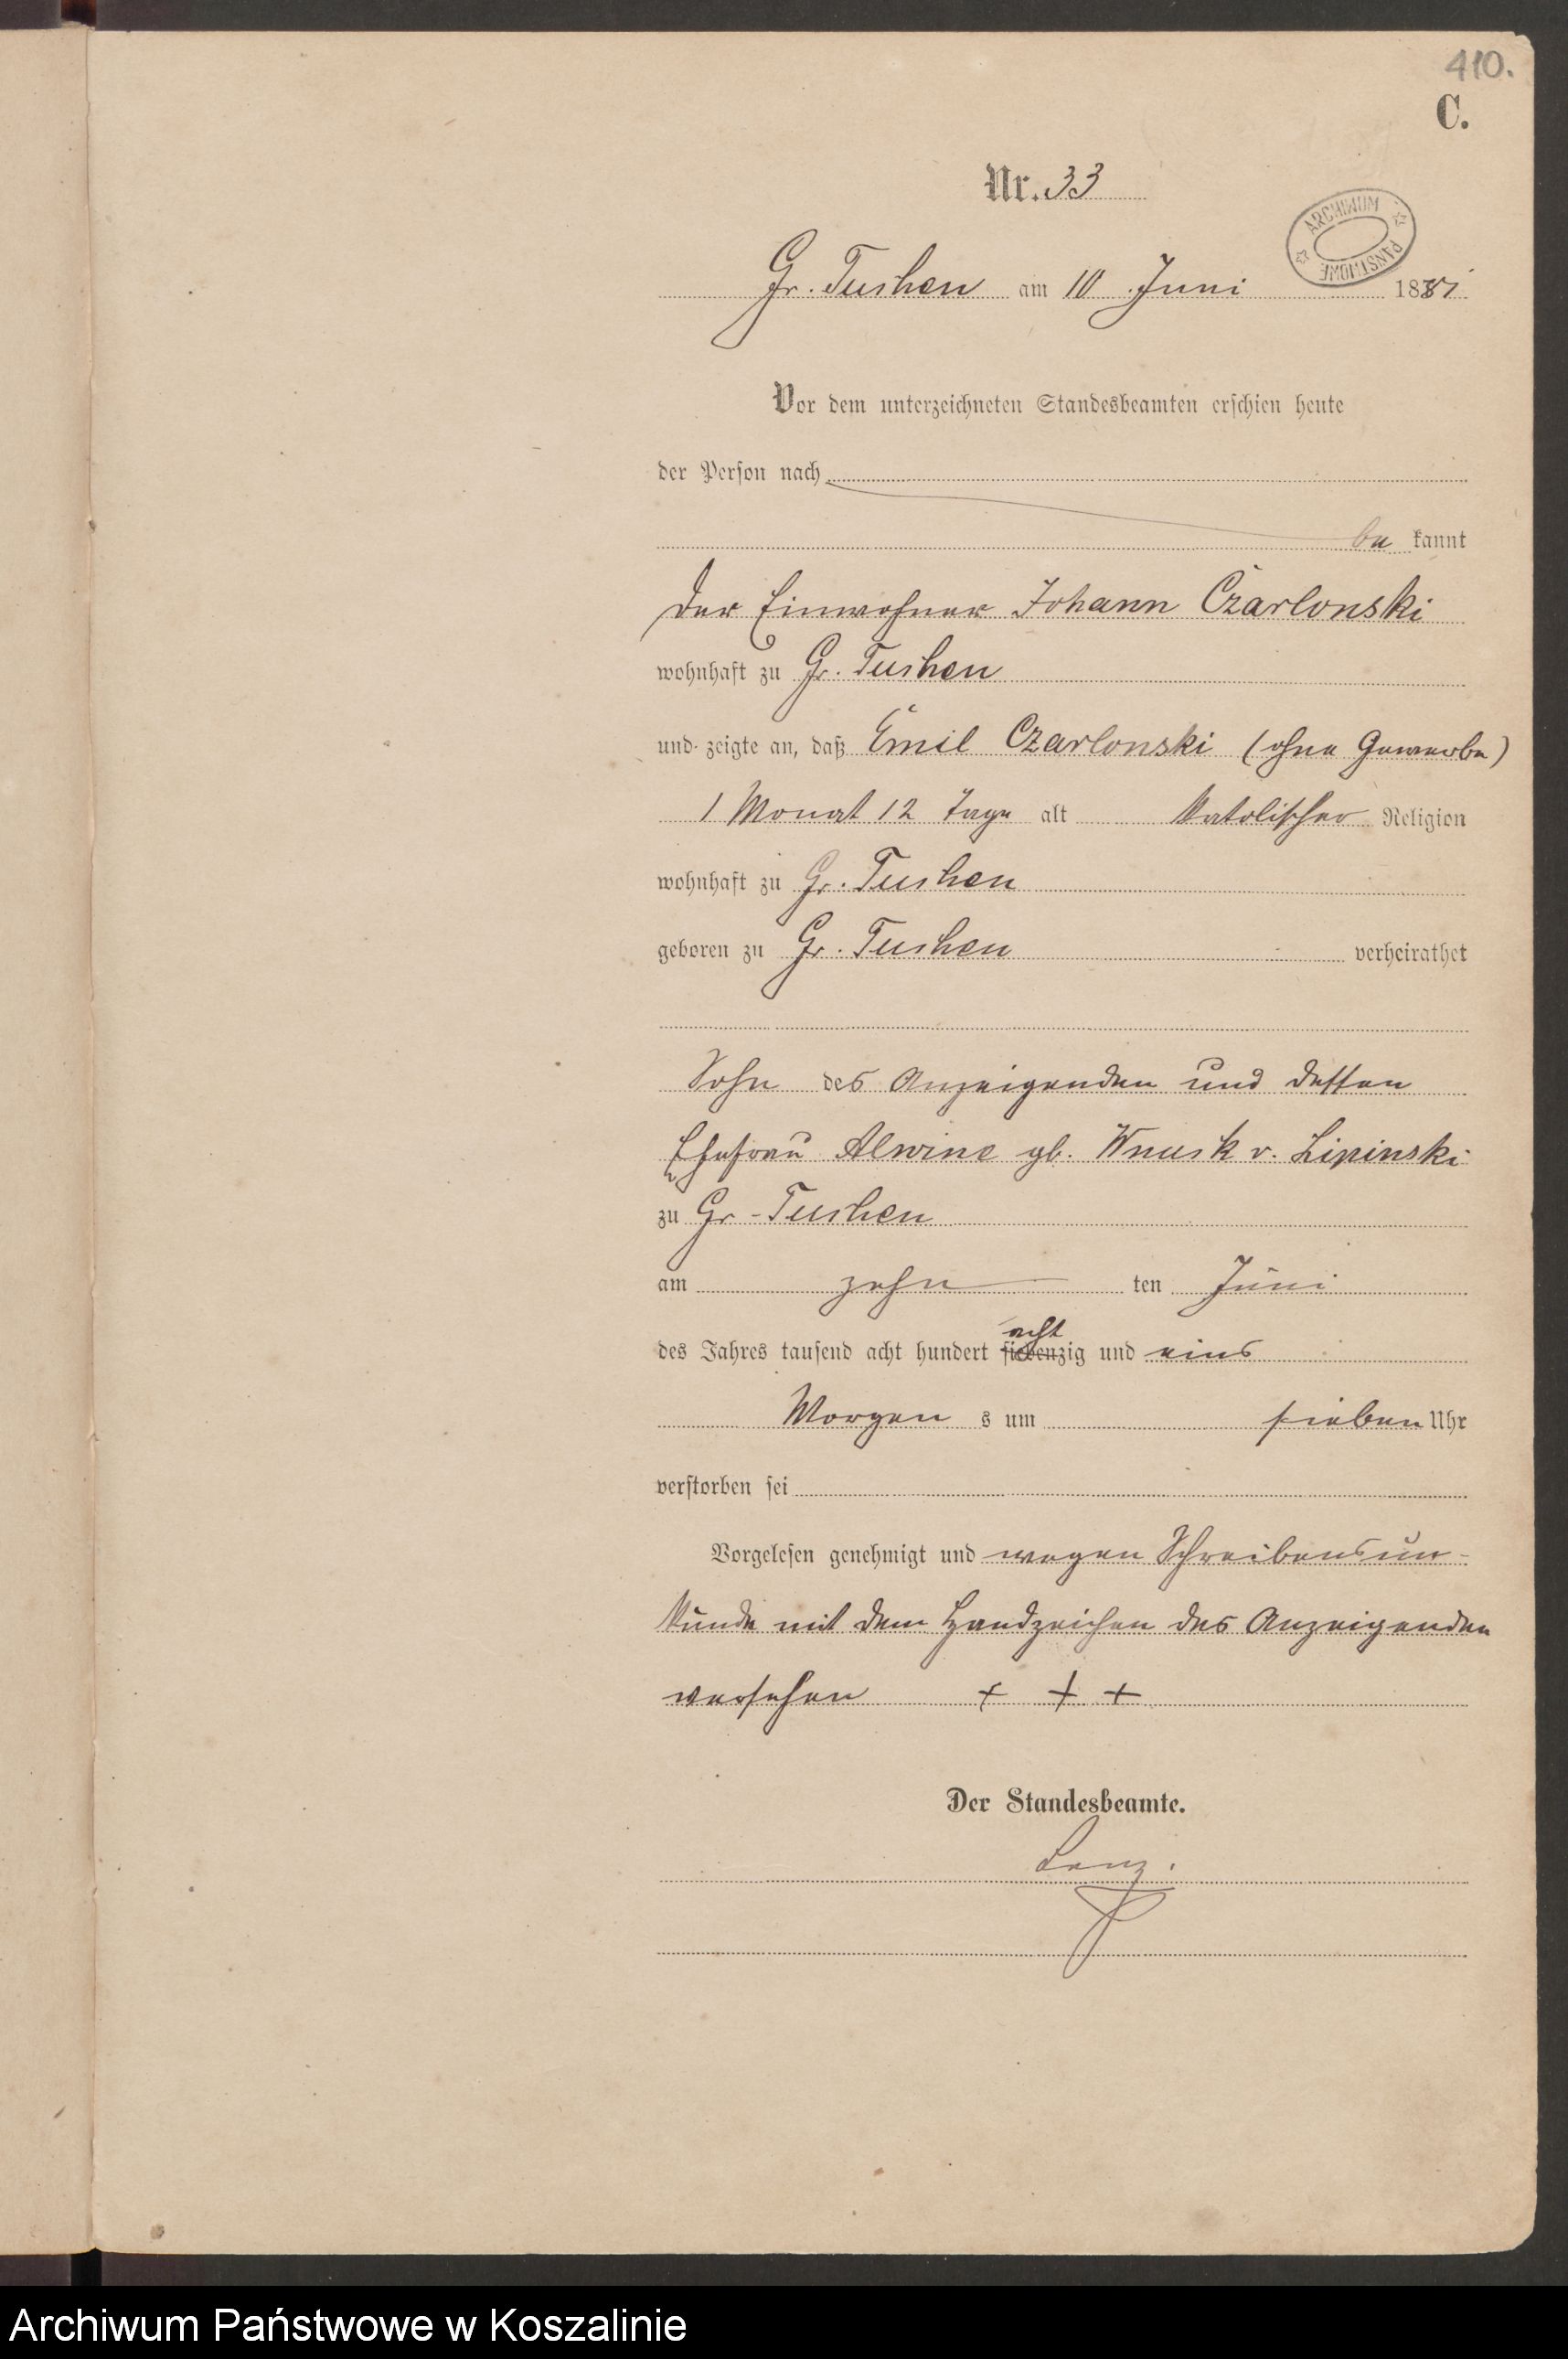 410.
C.
Nr. 33
ARCHIWUM PAŃSTWOWE
Gr. Tuchen am 10 Juni 1881
Vor dem unterzeichneten Standesbeamten erschien heute
der Person nach
be kannt
der Einwohner Johann Czarlonski
wohnhaft zu Gr. Tuchen
und zeigte an, daß Emil Czarlonski (ohne Gewerbe)
1 Monat 12 Tage alt katolischer Religion
wohnhaft zu Gr. Tuchen
geboren zu Gr. Tuchen verheirathet
Sohn des Anzeigenden und dessen
Ehefrau Alwine gb. Wnuck v. Lipinski
zu Gr-Tuchen
am zehn ten Juni
des Jahres tausend acht hundert siebenzig acht und eins
Morgen s um sieben Uhr
verstorben sei
Vorgelesen genehmigt und wegen Schreibensun-
kunde mit dem Handzeichen des Anzeigenden
versehen + + +
Der Standesbeamte.
Lenz.
Archiwum Państwowe w Koszalinie